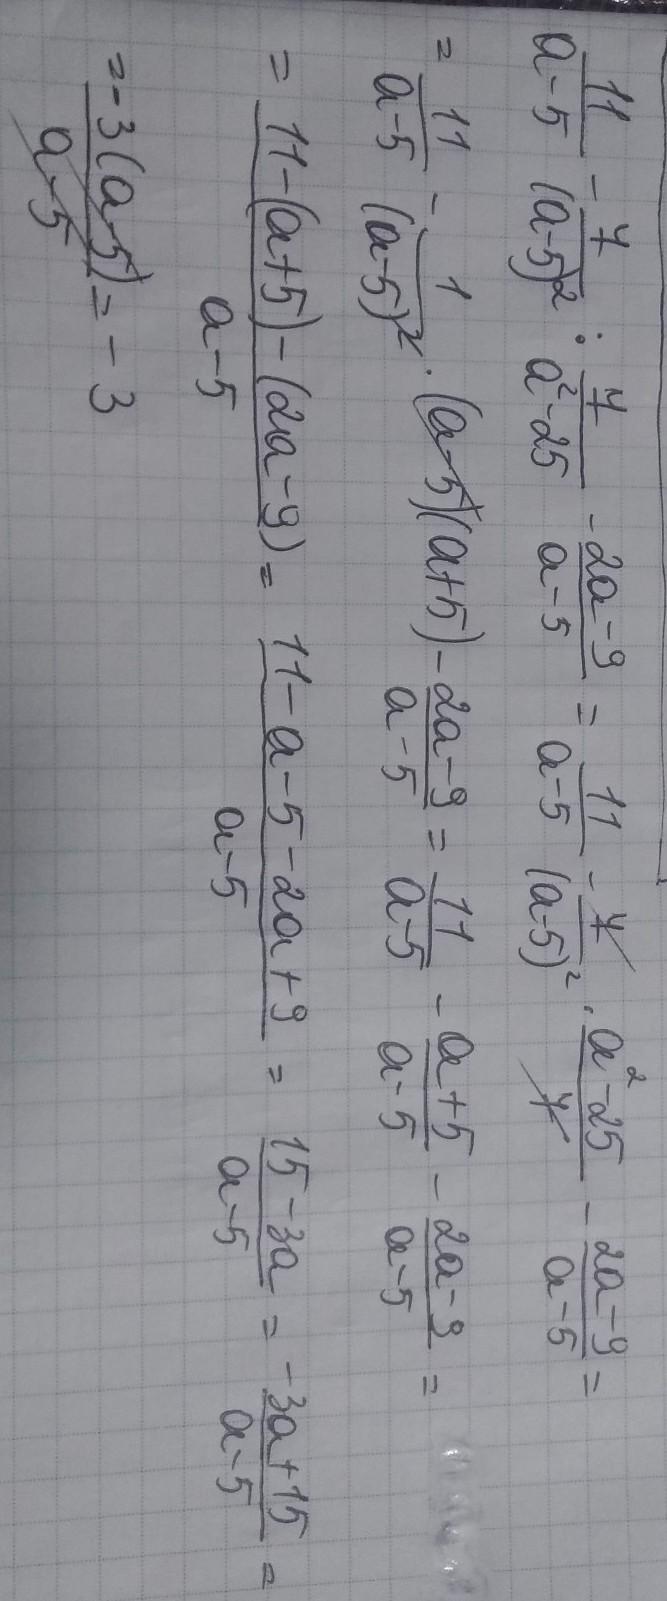 11/(a-5) - 7/(a-5)² : 7/(a²-25) - (2a-9)/(a-5) = 11/(a-5) - 7/(a-5)² · (a²-25)/7 - (2a-9)/(a-5) =
= 11/(a-5) - 1/(a-5)² · (a-5)(a+5) - (2a-9)/(a-5) = 11/(a-5) - (a+5)/(a-5) - (2a-9)/(a-5) =
= (11-(a+5)-(2a-9))/(a-5) = (11-a-5-2a+9)/(a-5) = (15-3a)/(a-5) = (-3a+15)/(a-5) =
= -3(a-5)/(a-5) = -3